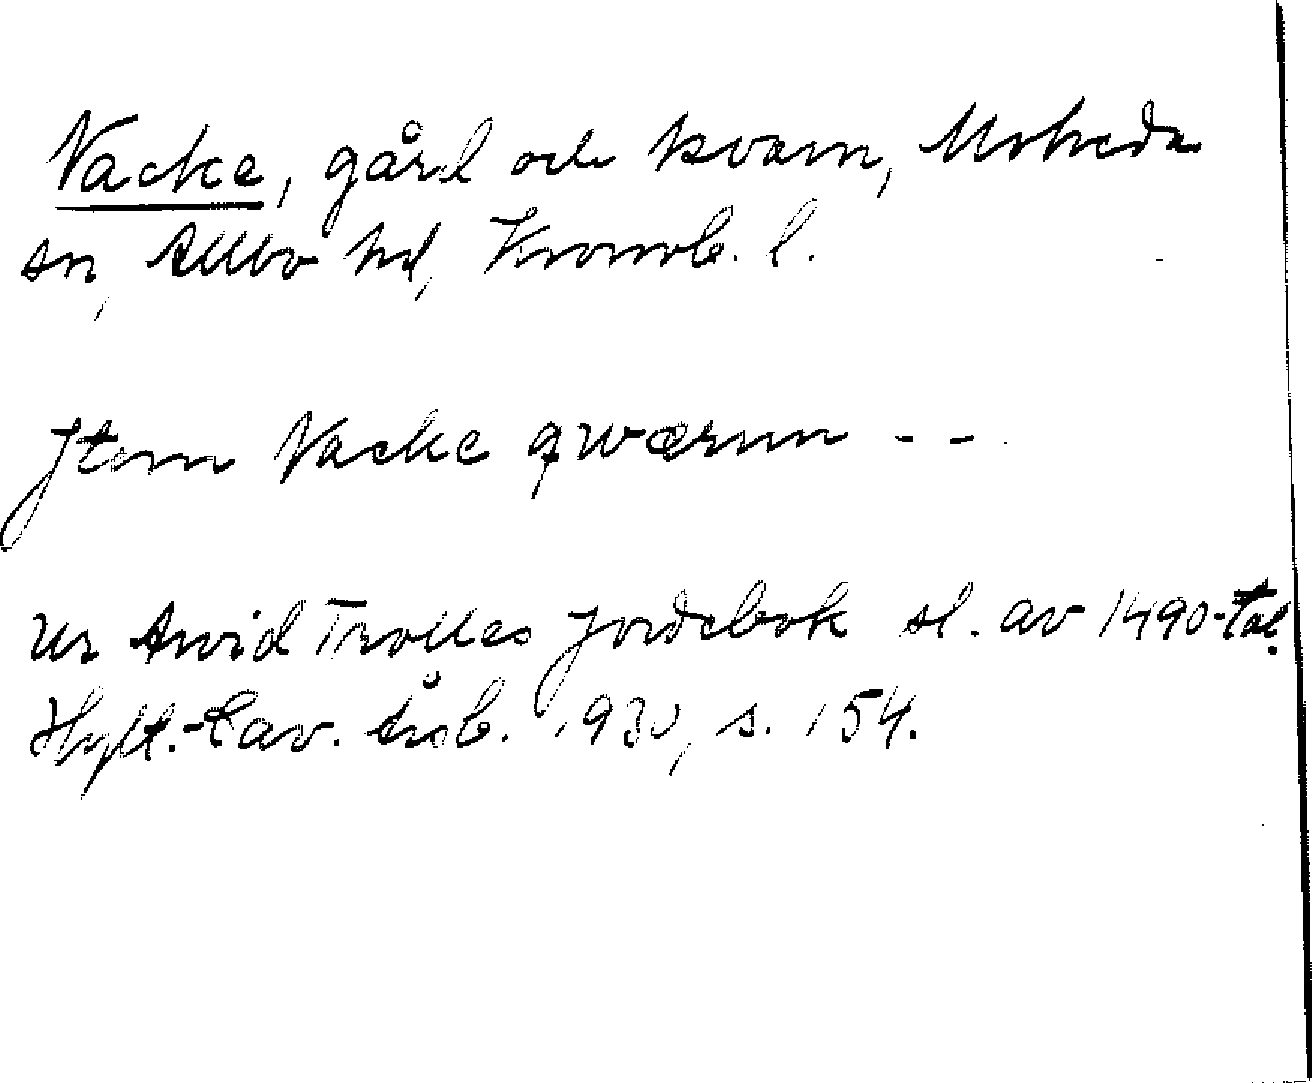 Nacke, gård och kvarn, Moheda
sn, Allbo hd, Kronob. l.
Jtem Nacke qwærnn - -
Ur Arvid Trolles jordebok sl. av 1490-tal.
Hylt.-Cav. årsb. 1930, s. 154.